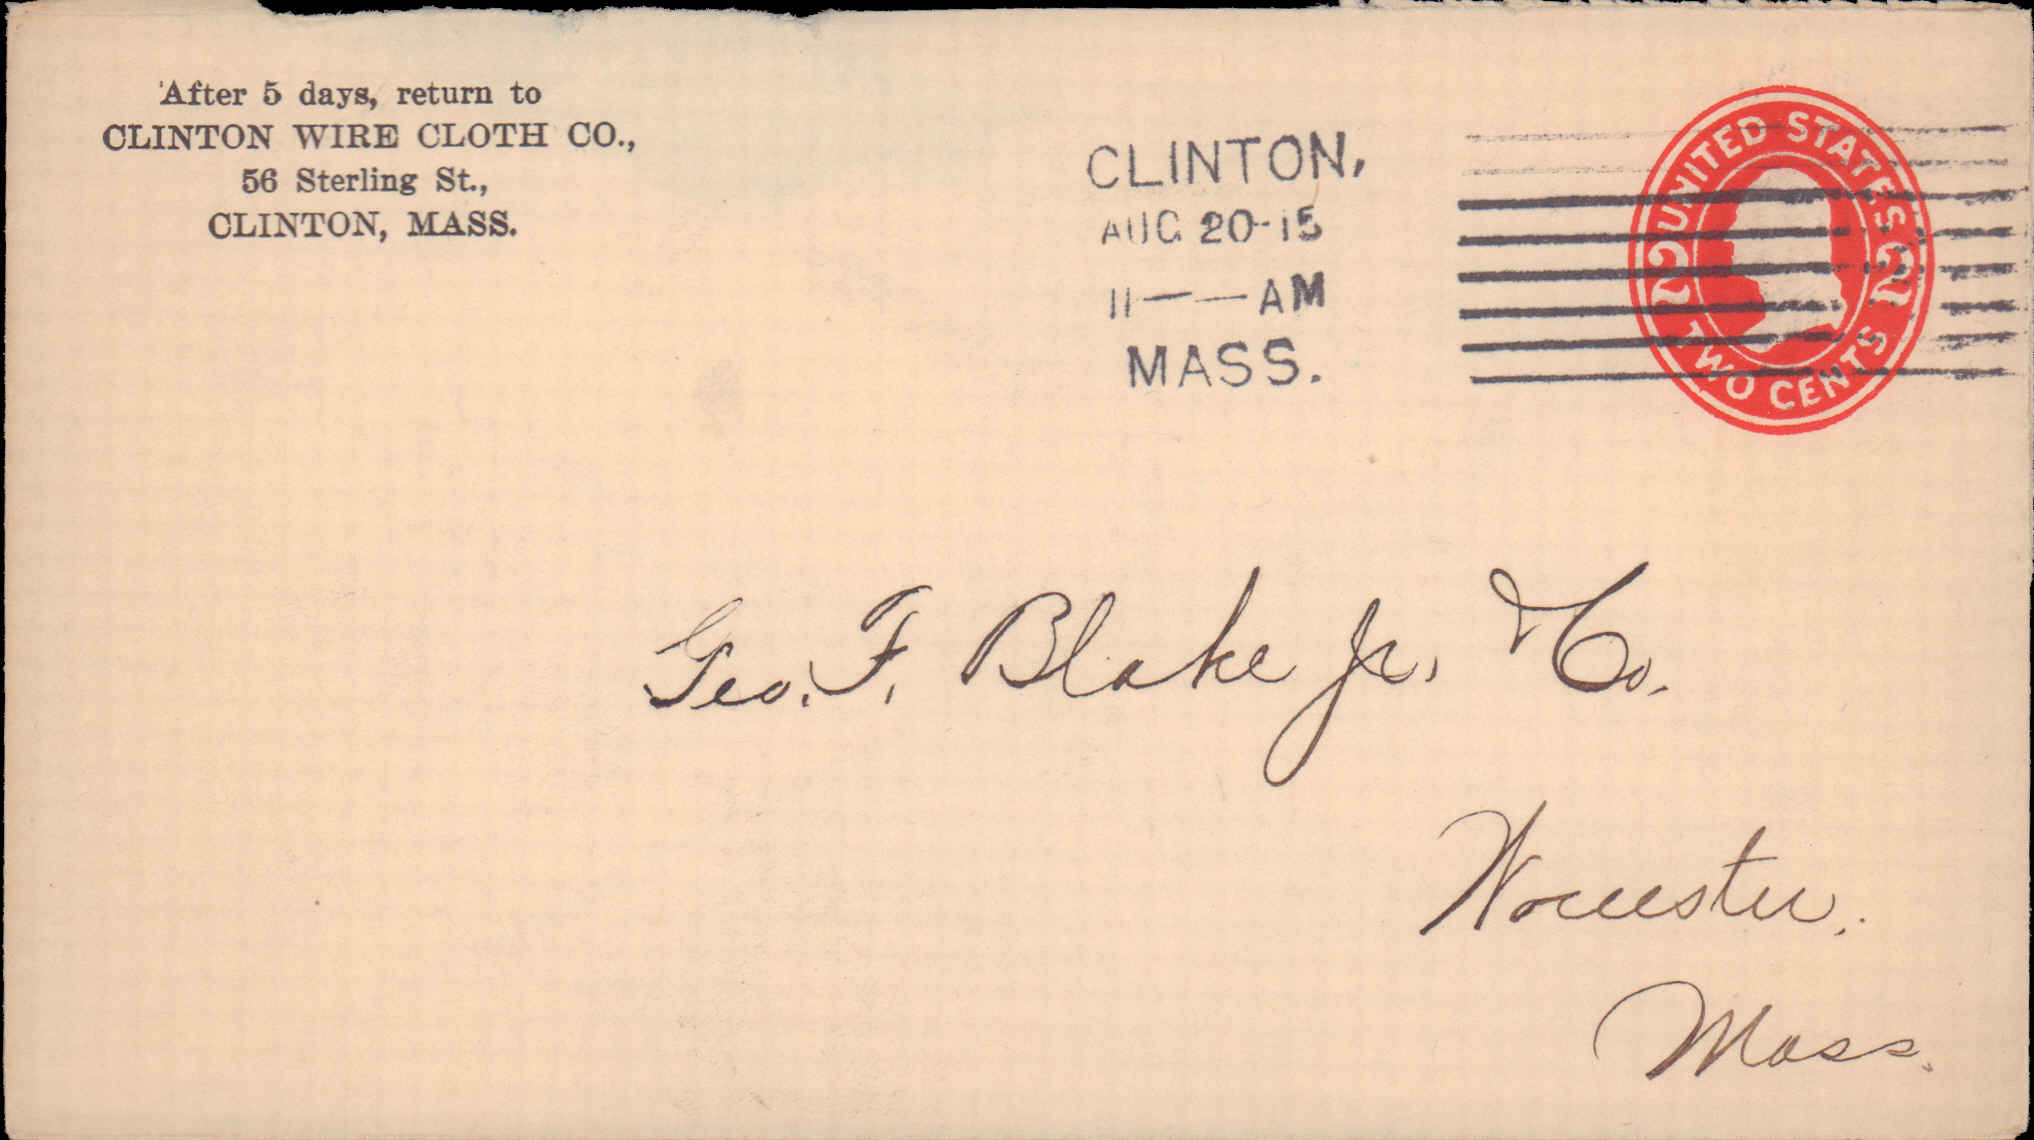 After 5 days, return to
CLINTON WIRE CLOTH CO.,
56 Sterling St.,
CLINTON, MASS.
CLINTON,
AUG 20-15
11 — — AM
MASS.
UNITED STATES
2 2
TWO CENTS
Geo. F. Blake Jr. & Co.
Worcester.
Mass.